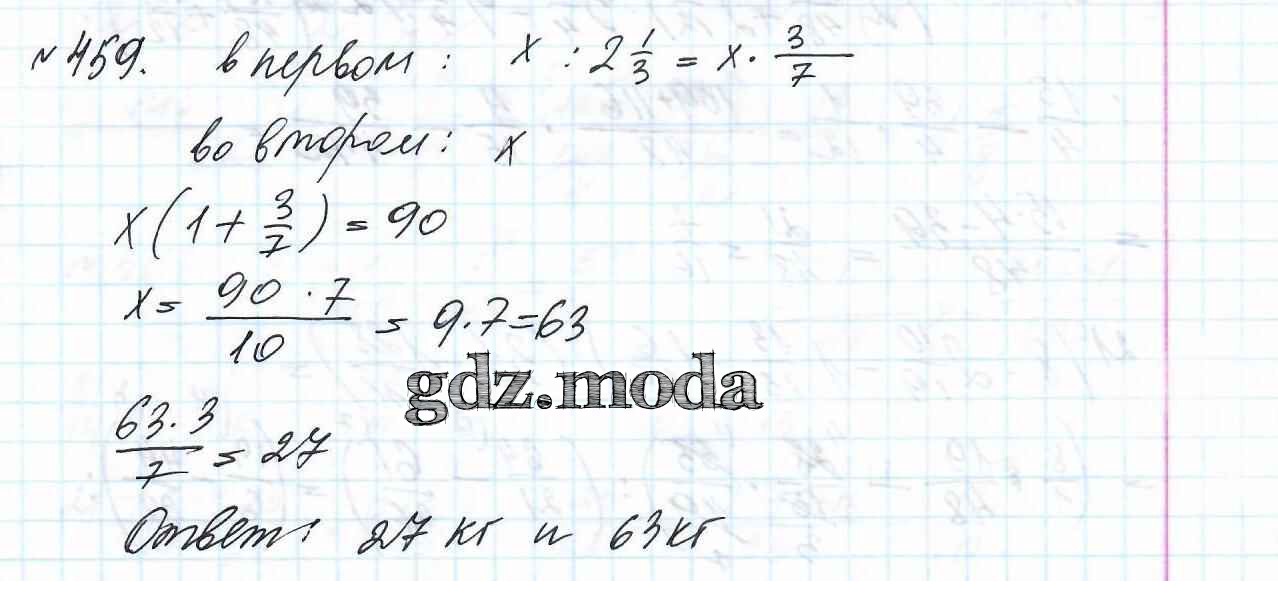 № 459. в первом : x : 2 1/3 = x · 3/7
во втором : x
x (1 + 3/7) = 90
x = 90 · 7 / 10 = 9 · 7 = 63
gdz.moda
63 · 3 / 7 = 27
Ответ: 27 кг и 63 кг